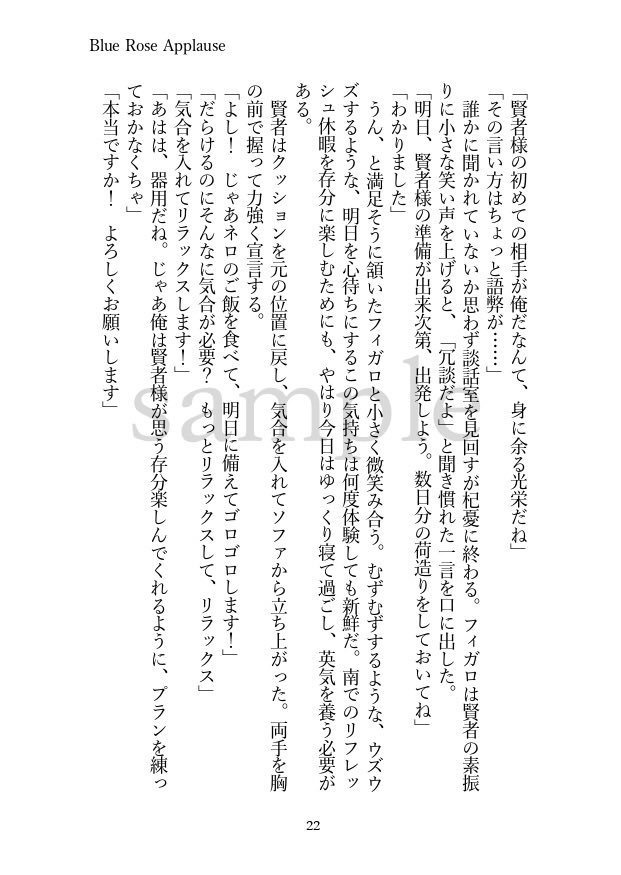 Blue Rose Applause
「賢者様の初めての相手が俺だなんて、身に余る光栄だね」
「その言い方はちょっと語弊が……」
　誰かに聞かれていないか思わず談話室を見回すが杞憂に終わる。フィガロは賢者の素振
りに小さな笑い声を上げると、「冗談だよ」と聞き慣れた一言を口に出した。
「明日、賢者様の準備が出来次第、出発しよう。数日分の荷造りをしておいてね」
「わかりました」
　うん、と満足そうに頷いたフィガロと小さく微笑み合う。むずむずするような、ウズウ
ズするような、明日を心待ちにするこの気持ちは何度体験しても新鮮だ。南でのリフレッ
シュ休暇を存分に楽しむためにも、やはり今日はゆっくり寝て過ごし、英気を養う必要が
ある。
　賢者はクッションを元の位置に戻し、気合を入れてソファから立ち上がった。両手を胸
の前で握って力強く宣言する。
「よし！　じゃあネロのご飯を食べて、明日に備えてゴロゴロします！」
「だらけるのにそんなに気合が必要？　もっとリラックスして、リラックス」
「気合を入れてリラックスします！」
「あはは、器用だね。じゃあ俺は賢者様が思う存分楽しんでくれるように、プランを練っ
ておかなくちゃ」
「本当ですか！　よろしくお願いします」
sample
22